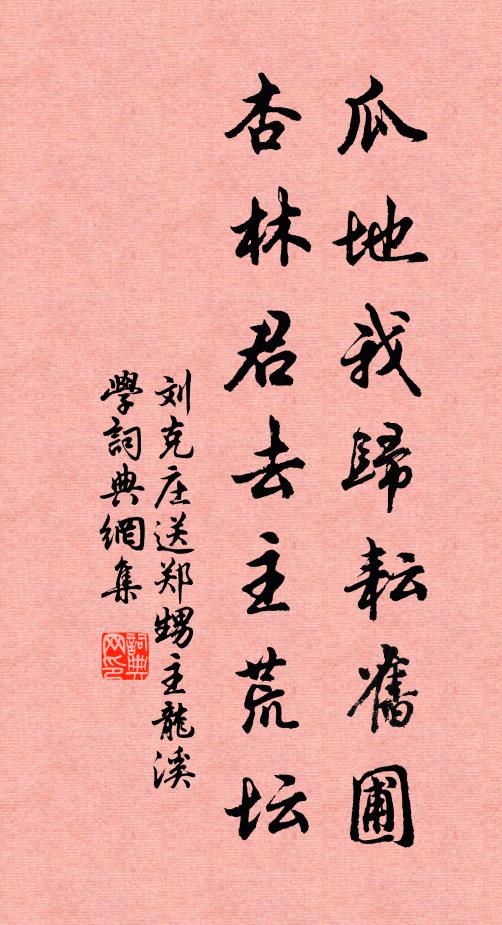 瓜地我歸耘舊圃
杏林君去主荒坛
刘克庄送郑甥主龍溪
學詞典網集
詞典
网印